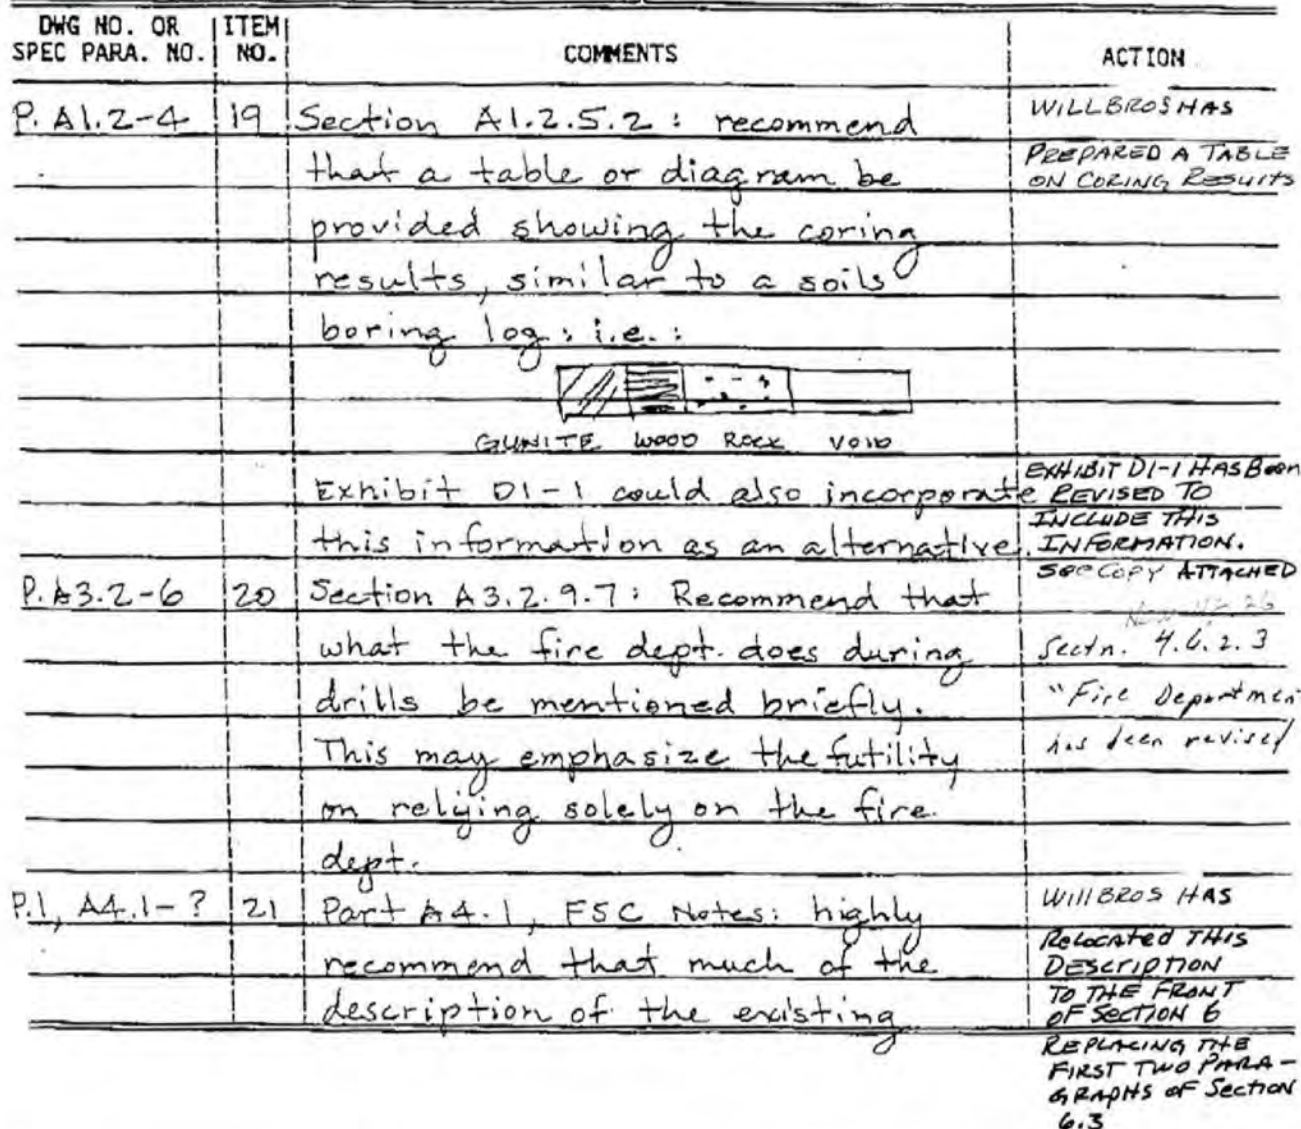 DWG NO. OR SPEC PARA. NO. ITEM NO. COMMENTS ACTION
P. A1.2-4 19 Section A1.2.5.2: recommend
that a table or diagram be
provided showing the coring
results, similar to a soils
boring log: i.e.:
GUNITE WOOD ROCK VOID
Exhibit D1-1 could also incorporate
this information as an alternative.
WILLBROS HAS
PREPARED A TABLE
ON CORING RESULTS
EXHIBIT D1-1 HAS Been
REVISED TO
INCLUDE THIS
INFORMATION.
See COPY ATTACHED
P. A3.2-6 20 Section A3.2.9.7: Recommend that
what the fire dept. does during
drills be mentioned briefly.
This may emphasize the futility
on relying solely on the fire
dept.
Sectn. 4.6.2.3
"Fire Departmen
has been revised
P.1, A4.1-? 21 Part A4.1, FSC Notes: highly
recommend that much of the
description of the existing
WillBROS HAS
Relocated THIS
DEScription
TO THE FRONT
OF SECTION 6
REPLACING THE
FIRST TWO PARA-
GRAPHS OF Section
6.3